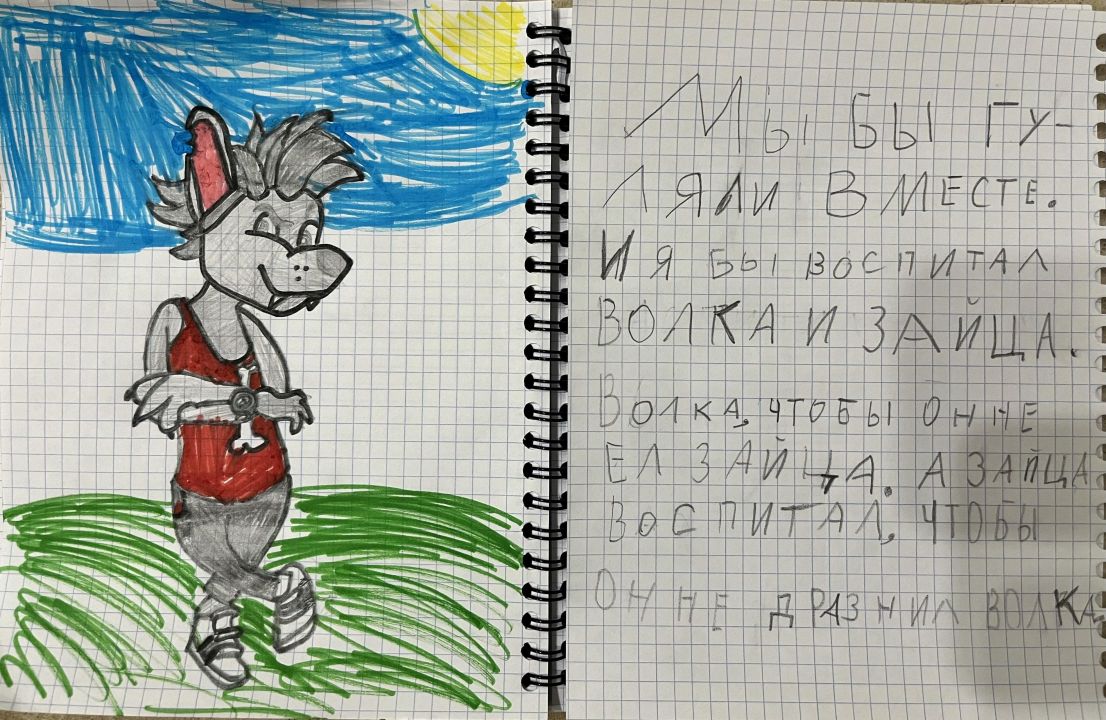 Мы бы гу-
ляли вместе.
И я бы воспитал
волка и зайца.
Волка, чтобы он не
ел зайца. А зайца
воспитал, чтобы
он не дразнил волка